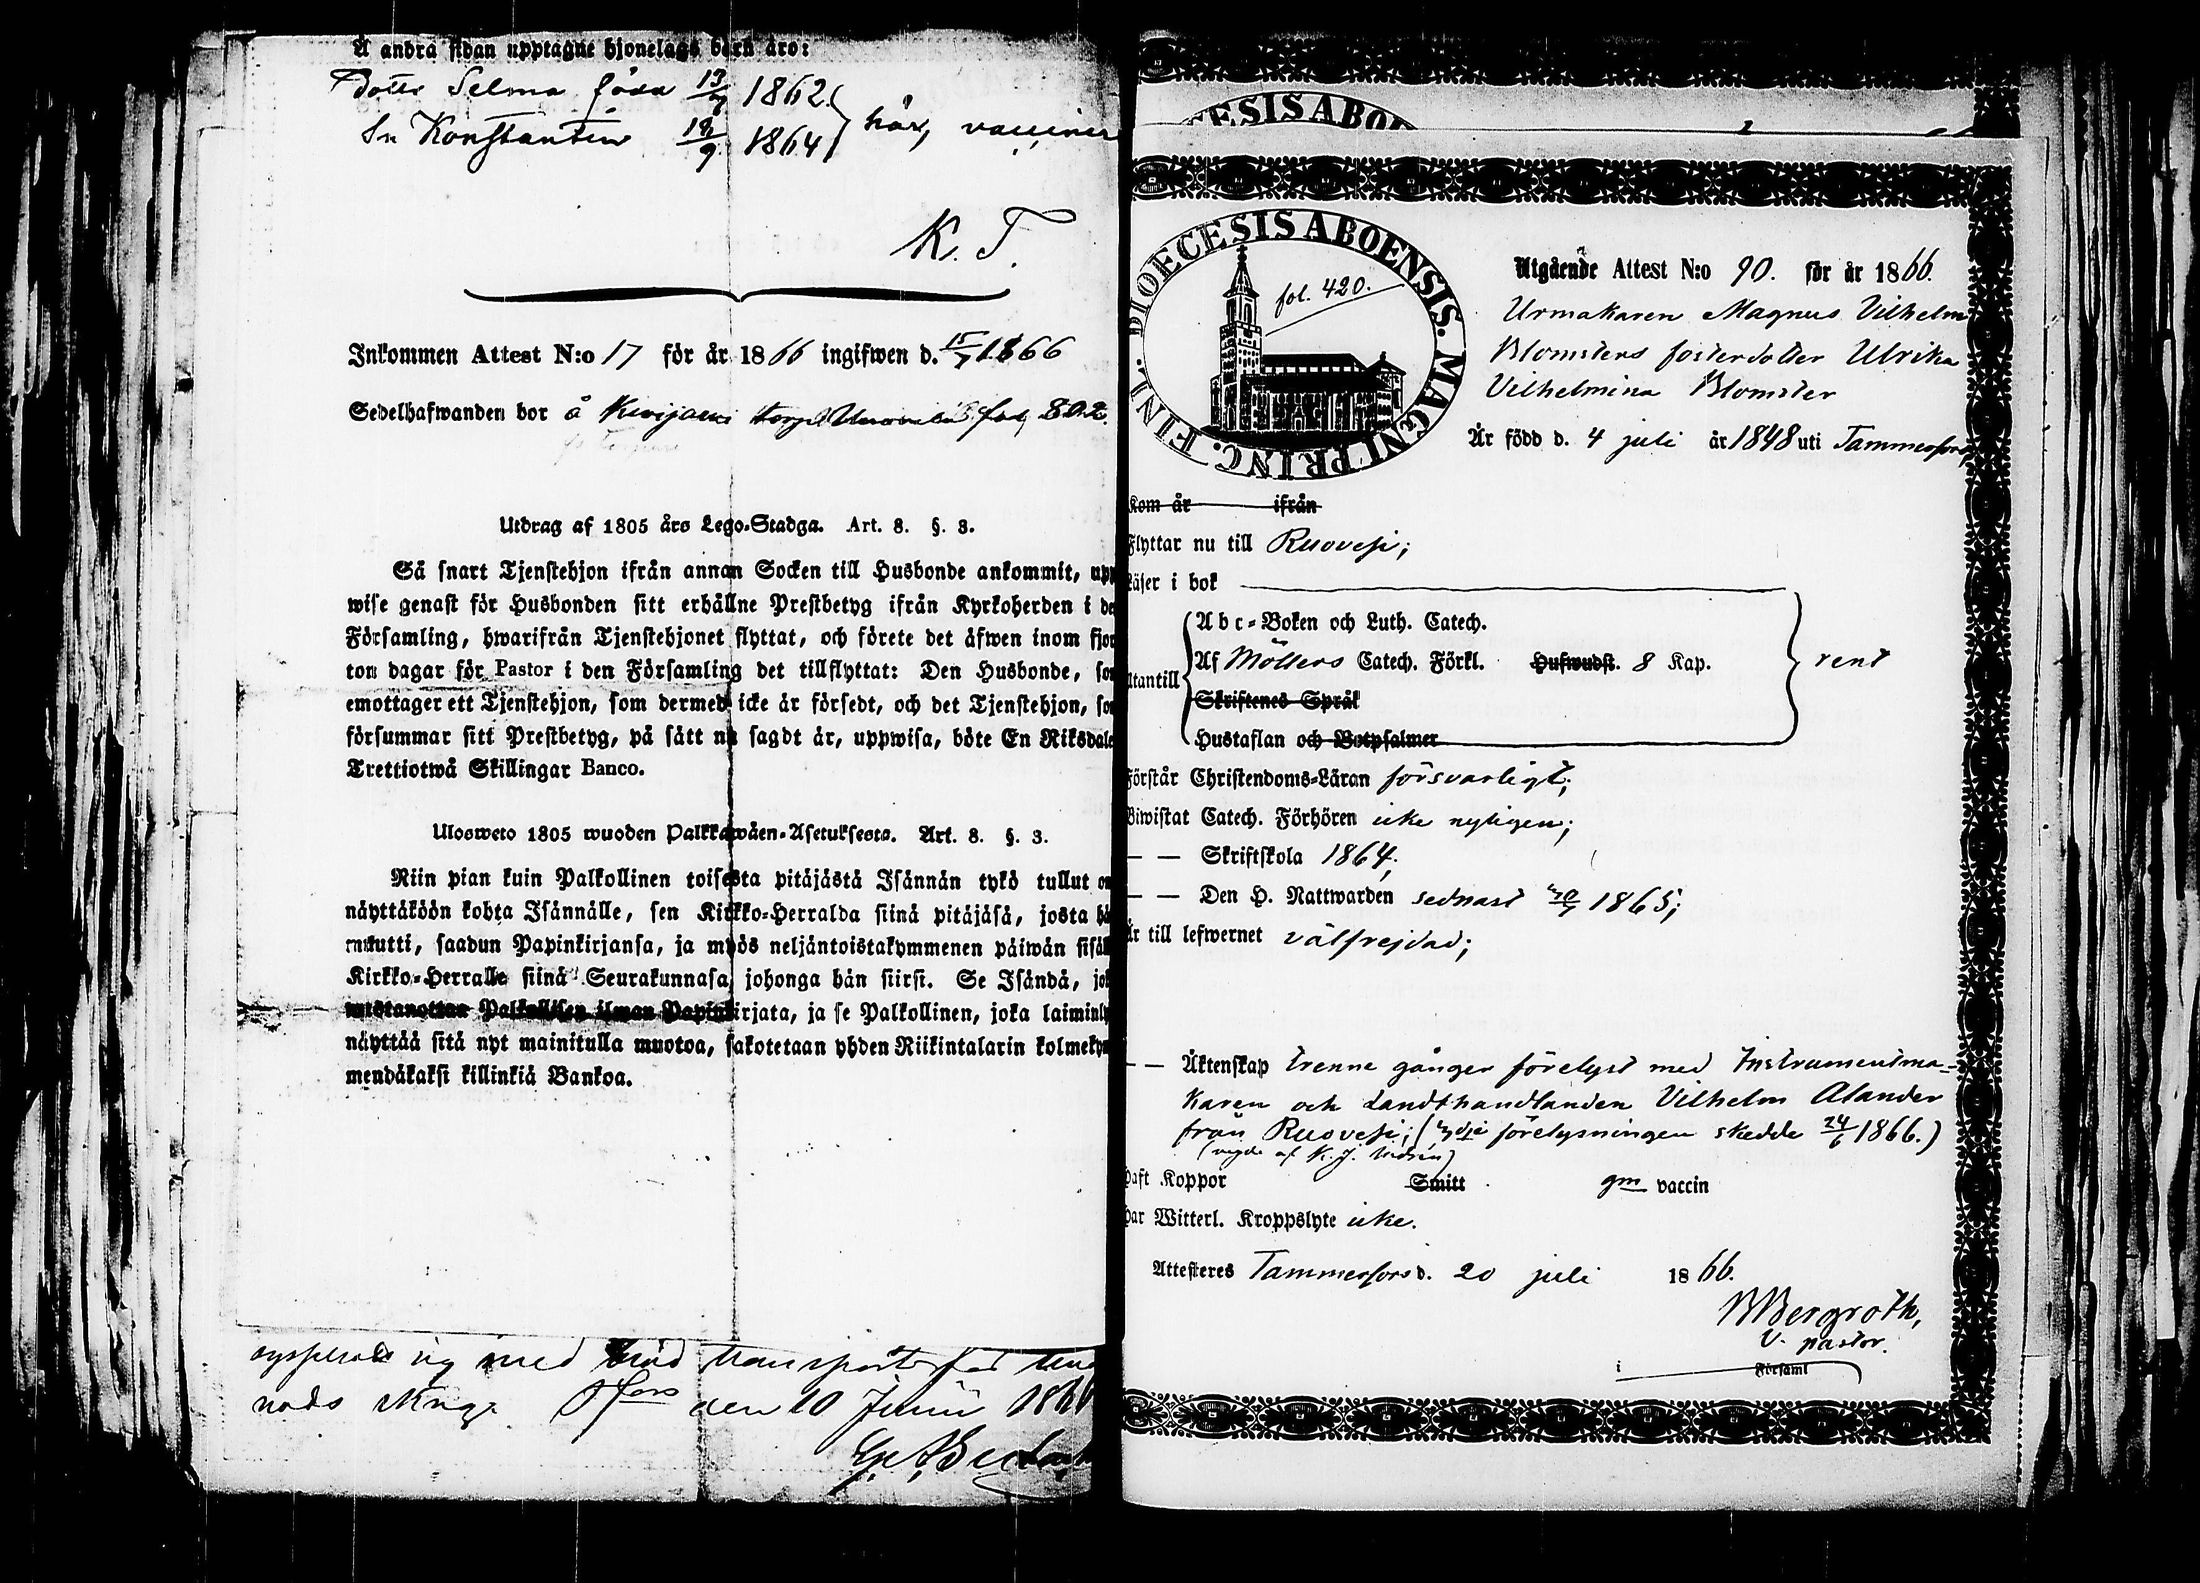 Å andra sidan upptagne hjonelags barn äro:
Dotter Selma född 13/7 1862
Sn Konstantin 18/9 1864 } här, vacciner
K. T.
Inkommen Attest N:o 17 för år 1866 ingifwen d. 15/7 1866
Sedelhafwanden bor å torp
Utdrag af 1805 års Lego-Stadga. Art. 8. §. 3.
Så snart Tjenstehjon ifrån annan Socken till Husbonde ankommit, upp
wise genast för Husbonden sitt erhållne Prestbetyg ifrån Kyrkoherden i de
Församling, hwarifrån Tjenstehjonet flyttat, och förete det äfwen inom fjor
ton dagar för Pastor i den Församling det tillflyttat: Den Husbonde, so
emottager ett Tjenstehjon, som dermed icke är försedt, och det Tjenstehjon, so
försummar sitt Prestbetyg, på sätt nu sagdt är, uppwisa, böte En Riksdale
Trettiotwå Skillingar Banco.
Ulosweto 1805 wuoden Palkkawäen-Asetuksesta. Art. 8. §. 3.
Niin pian kuin Palkollinen toisesta pitäjästä Isännän tykö tullut on
näyttäköön kohta Isännälle, sen Kirkko-Herralda siinä pitäjäsä, josta hä
muutti, saadun Papinkirjansa, ja myös neljäntoistakymmenen päiwän sisäl
Kirkko-Herralle siinä Seurakunnasa johonga hän siirsi. Se Isändä, jok
wastanottaa Palkollisen ilman Papinkirjata, ja se Palkollinen, joka laiminly
näyttää sitä nyt mainitulla muotoa, sakotetaan yhden Riikintalarin kolmekym
mendäkaksi killinkiä Bankoa.
sig med transport
nads den 10 Junii 1866
DIOECESIS ABO
DIOECESIS ABOENSIS. MAGNI PRINC. FINL.
fol. 420.
Utgående Attest N:o 90. för år 1866.
Urmakaren Magnus Vilhelm
Blomsters fosterdotter Ulrika
Vilhelmina Blomster
Är född d. 4 juli år 1848 uti Tammerfors,
Kom år ifrån
Flyttar nu till Ruovesi;
Läser i bok
Abc-Boken och Luth. Catech.
Utantill Af Möllers Catech. Förkl. Hufwudst. 8 Kap. rent
Skriftenes Språk
Hustaflan och Botpsalmer
Förstår Christendoms-Läran försvarligt;
Biwistat Catech. Förhören icke nyligen;
— — Skriftskola 1864;
— — Den H. Nattwarden sednast 30/7 1865;
Är till lefwernet välfrejdad;
— — Äktenskap trenne gånger förelyst med Instrumentma-
karen och Landthandlanden Vilhelm Alander
från Ruovesi; (3dje förelysningen skedde 24/6 1866.)
(vigde af K. J.
Haft Koppor Smitt gm vaccin
Har Witterl. Kroppslyte icke.
Attesteres Tammerfors d. 20 juli 1866.
BBergroth,
V. pastor.
Församl